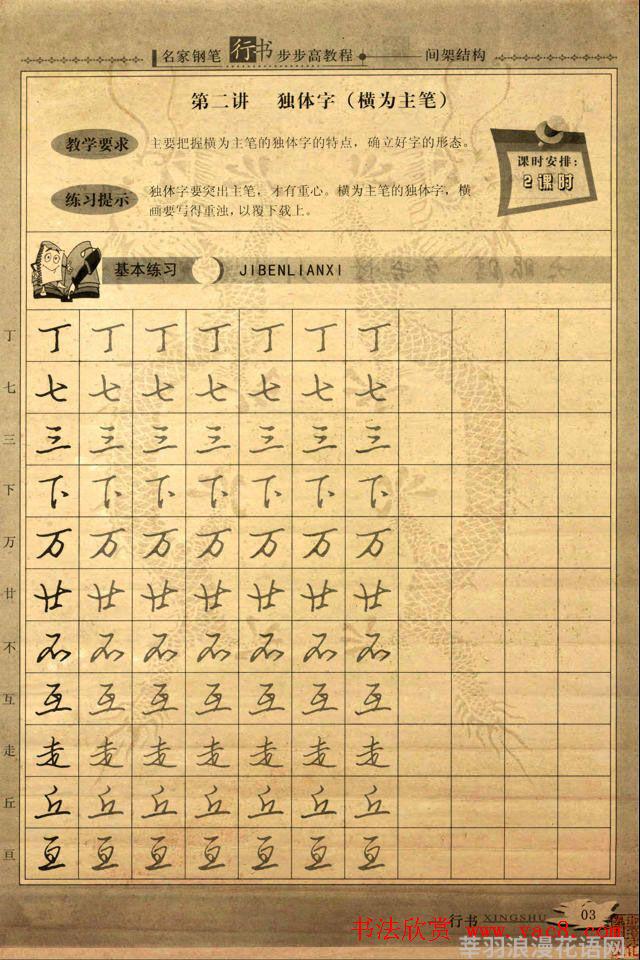 名家钢笔行书步步高教程 间架结构
第二讲 独体字（横为主笔）
教学要求 主要把握横为主笔的独体字的特点，确立好字的形态。
练习提示 独体字要突出主笔，才有重心。横为主笔的独体字，横
画要写得重浊，以覆下载上。
课时安排：
2课时
基本练习 JIBENLIANXI
丁 丁 丁 丁 丁 丁 丁 丁
七 七 七 七 七 七 七 七
三 三 三 三 三 三 三 三
下 下 下 下 下 下 下 下
万 万 万 万 万 万 万 万
廿 廿 廿 廿 廿 廿 廿 廿
不 不 不 不 不 不 不 不
互 互 互 互 互 互 互 互
走 走 走 走 走 走 走 走
丘 丘 丘 丘 丘 丘 丘 丘
亘 亘 亘 亘 亘 亘 亘 亘
行书 XINGSHU 03
书法欣赏 www.yac8.com
莘羽浪漫花语网